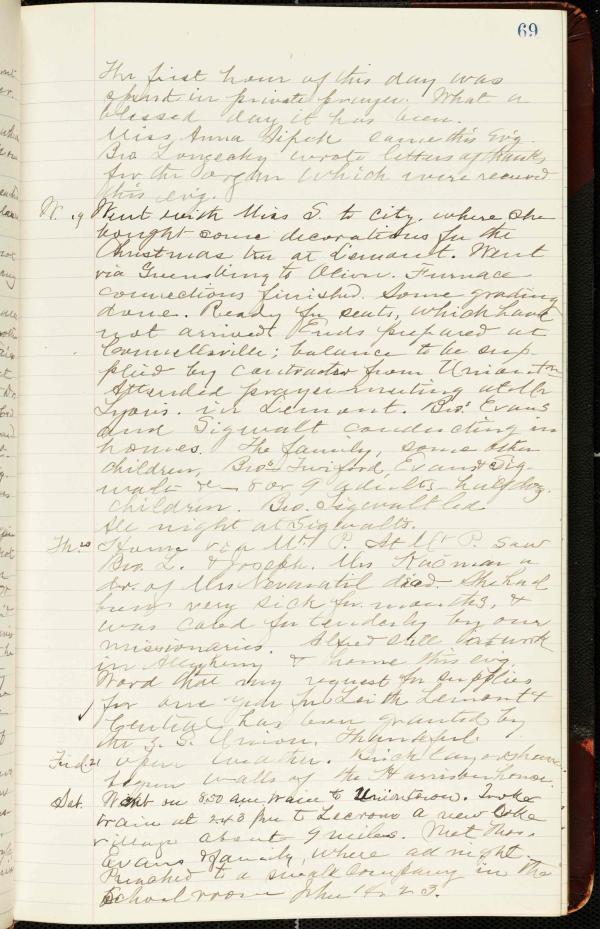 69
The first hour of this day was
spent in private prayer. What a
blessed day it has been.
Miss Anna came this Ev'g.
Bro wrote letters of thanks
for the organ which were received
this ev'g.
W. 19 Went with Miss S. to city. where she
bought some decorations for the
Christmas tree at Lemont. Went
via Greensburg to Furnace
connections finished. Some grading
done. Ready for seats, which have
not arrived Ends prepared at
Connellsville; balance to be sup-
plied by contractor from Uniontn
Attended prayer-meeting at Mr
Lyons. in Lemont. Bros. Evans
and Sigwalt conducting in
homes. The family, some other
children, Bros. Twiford, Evans & Sig-
walt & 8 or 9 adults half doz.
children. Bro. Sigwalt led
All night at Sigwalts.
Th. 20 Home via Mt. P. At Mt P. saw
Bro. L. & Joseph. Mrs a
dr. of Mrs died. She had
been very sick for months, &
was cared for tenderly by our
missionaries. Alfred still at work
in Allegheny & home this ev'g.
Word that my request for supplies
for one year for Leith Lemont &
Central has been granted by
the S. S. Union. Thankful.
Frid. 21 Open weather. Brick layers have
begun walls of the house.
Sat. Went on 8.50 am train to Uniontown. Took
train at 2.43 pm to Lecrone a new Coke
village about 9 miles. Met Thos.
Evans & family, where all night.
Preached to a small company in the
School room John 14. 23.